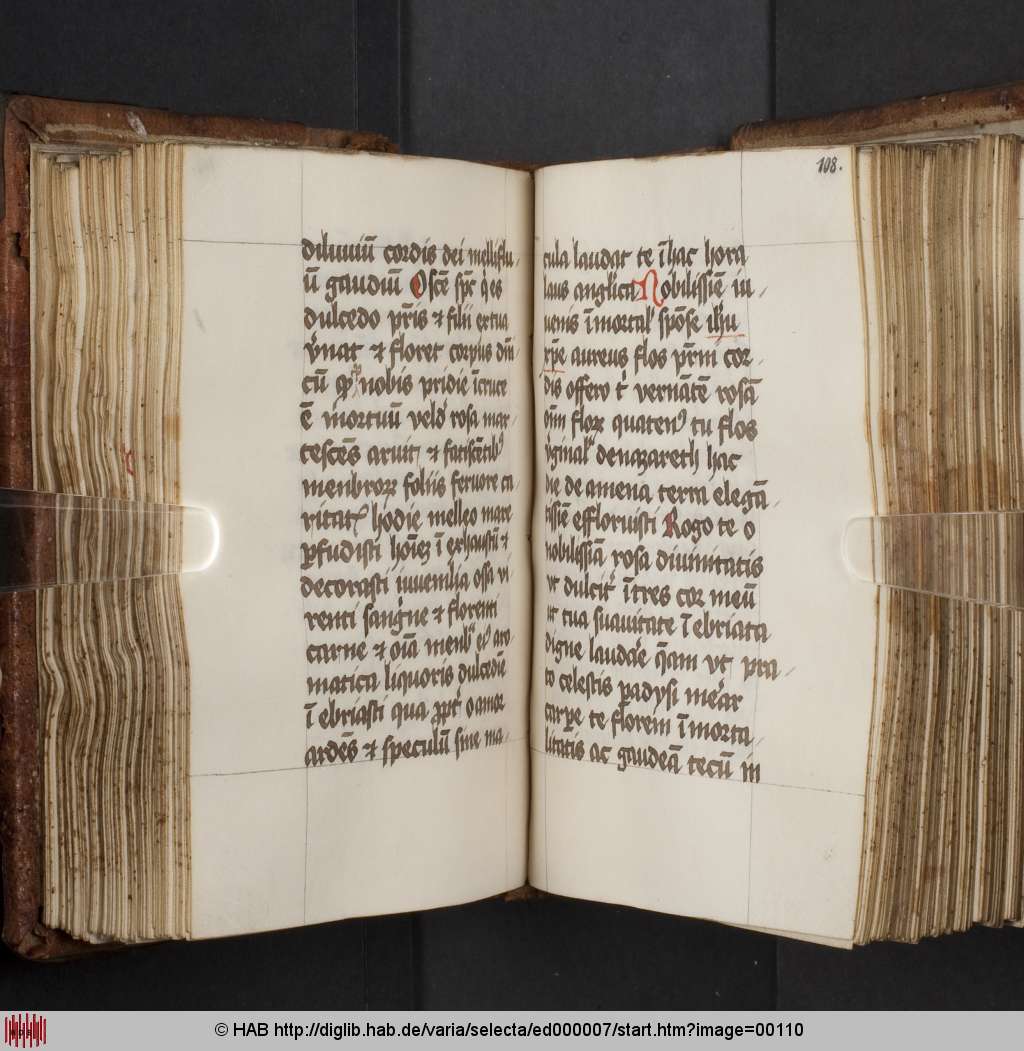 diluuiū cordis dei melliflu
ū gaudiū Oscē spc q̇ es
dulcedo pris ⁊ filii ex tua
v̇nat ⁊ floret corpus dn̄i
cū qp nobis pridie ī cruce
ē mortuū velđ rosa mar
cescēs aruit ⁊ fatiscētib9
menbroꝝ foliis feruore ca
ritatꝭ hodie melleo mare
ꝑfudisti hoiēz ī exhaustū ⁊
decorasti iuuenilia ossa vi
renti sangne ⁊ florenti
carne ⁊ oīa menb e9 aro
matica liquoris dulcedīe
ī ebriasti qua ꝓpt o amor
ardēs ⁊ speculū sine ma
108.
cula laudat te ī hac hora
laus anglica Nobilissīe iu
uenis ī mortal spōse ihu
xp̄e aureus flos prm cor
dis offero t vernātē rosā
om̄ floꝝ quaten9 tu flos
v̇ginal de nazareth hac
die de amena terra elegā
tissīe effloruisti Rogo te o
nobilissīa rosa diuinitatis
vt dulcit ītres cor meū
ut tua suauitate ī ebriata
digne laudare q̄am vt pra
to celestis ꝑadysi mear
carꝑe te florem ī morta
litatis ac gaudeā tecū in
© HAB http://diglib.hab.de/varia/selecta/ed000007/start.htm?image=00110